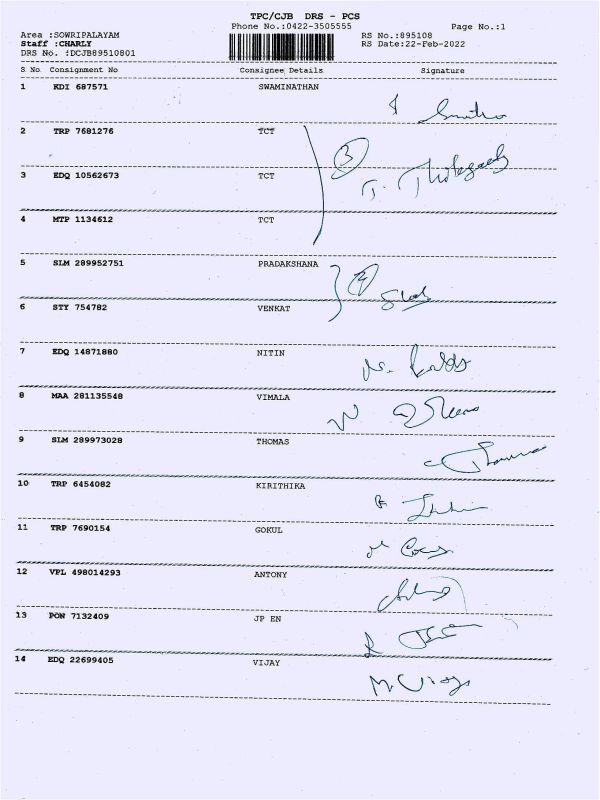 TPC/CJB DRS - PCS
Phone No.:0422-3505555 Page No.:1
Area :SOWRIPALAYAM RS No.:895108
Staff :CHARLY RS Date:22-Feb-2022
DRS No. :DCJB89510801
S No Consignment No Consignee Details Signature
1 KDI 687571 SWAMINATHAN
2 TRP 7681276 TCT
3
3 EDQ 10562673 TCT
4 MTP 1134612 TCT
5 SLM 289952751 PRADAKSHANA
6 STY 754782 VENKAT
7 EDQ 14871880 NITIN
8 MAA 281135548 VIMALA
9 SLM 289973028 THOMAS
10 TRP 6454082 KIRITHIKA
11 TRP 7690154 GOKUL
12 VPL 498014293 ANTONY
13 PON 7132409 JP EN
14 EDQ 22699405 VIJAY